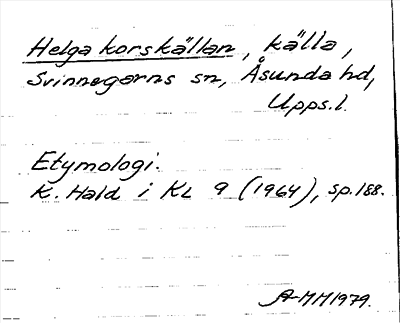 Helga korskällan, källa,
Svinnegarns sn, Åsunda hd,
Upps.l.
Etymologi.
K. Hald i KL 9 (1964), sp. 188.
A-MM 1979.